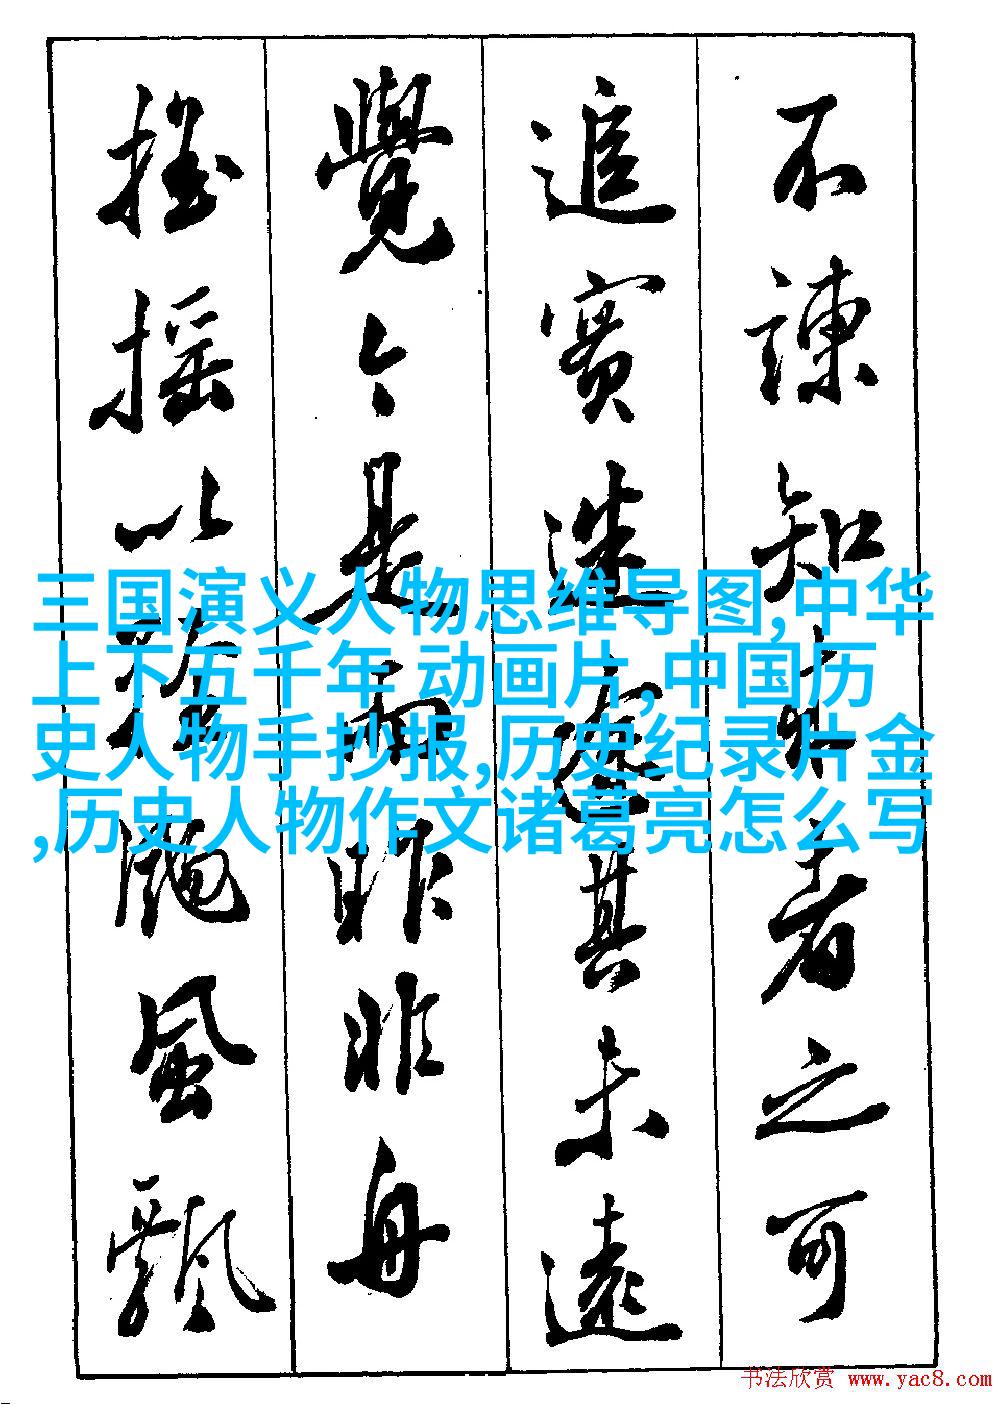 不諫知來者之可
追實迷途其未遠
覺今是而昨非舟
搖搖以輕颺風飄
三国演义人物思维导图,中华
上下五千年 动画片,中国历
史人物手抄报,历史纪录片金
,历史人物作文诸葛亮怎么写
书法欣赏 www.yac8.com